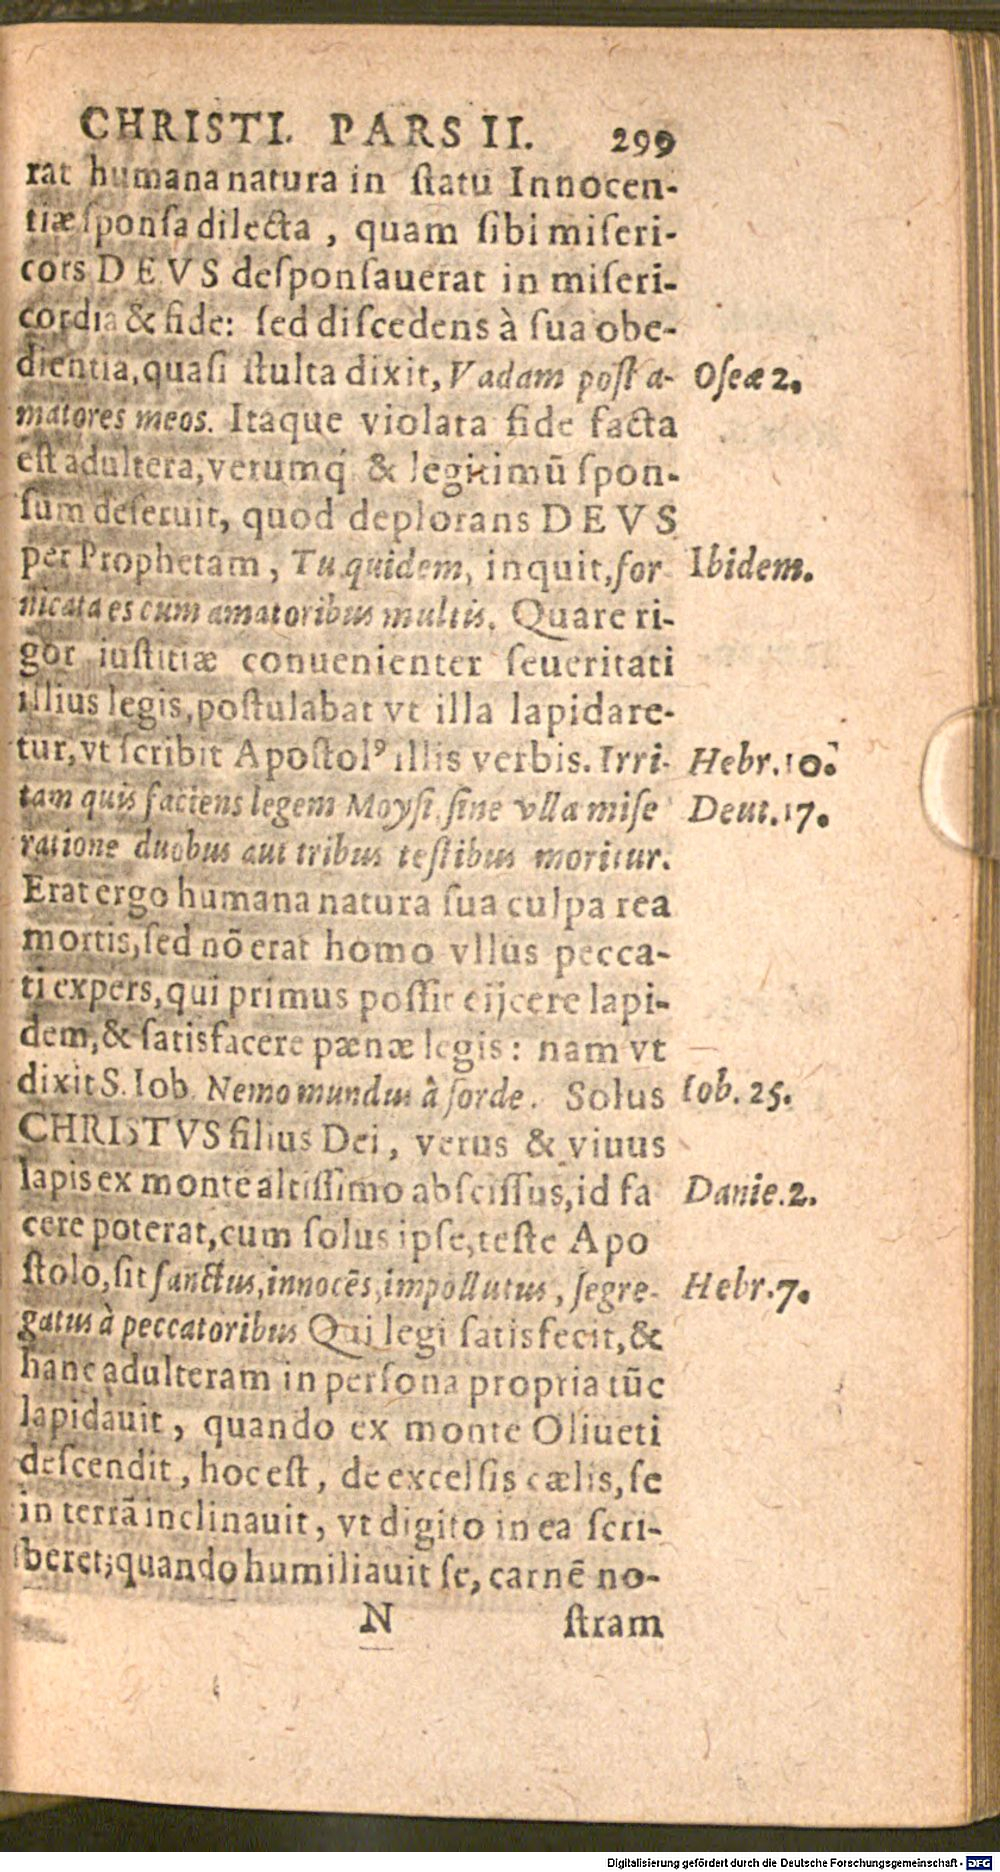 CHRISTI. PARS II. 299
rat humana natura in ſtatu Innocen-
tiæ ſponſa dilecta, quam ſibi miſeri-
cors DEVS deſponſauerat in miſeri-
cordia & fide: ſed diſcedens à ſua obe-
dientia, quaſi ſtulta dixit, Vadam poſt a- Oſeæ 2.
matores meos. Itaque violata fide facta
eſt adultera, verumq́ & legitimū ſpon-
ſum deſeruit, quod deplorans DEVS
per Prophetam, Tu quidem, inquit, for Ibidem.
nicata es cum amatoribus multis. Quare ri-
gor iuſtitiæ conuenienter ſeueritati
illius legis, poſtulabat vt illa lapidare-
tur, vt ſcribit Apoſtolꝰ illis verbis. Irri- Hebr. 10.
tam quis faciens legem Moyſi, ſine vlla miſe Deut. 17.
ratione duobus aut tribus teſtibus moritur.
Erat ergo humana natura ſua culpa rea
mortis, ſed nō erat homo vllus pecca-
ti expers, qui primus poſſit eijcere lapi-
dem, & ſatisfacere pænæ legis: nam vt
dixit S. Iob. Nemo mundus à ſorde. Solus Iob. 25.
CHRISTVS filius Dei, verus & viuus
lapis ex monte altiſſimo abſciſſus, id fa Danie. 2.
cere poterat, cum ſolus ipſe, teſte Apo
ſtolo, ſit ſanctus, innocēs, impollutus, ſegre- Hebr. 7.
gatus à peccatoribus Qui legi ſatisfecit, &
hanc adulteram in perſona propria tūc
lapidauit, quando ex monte Oliueti
deſcendit, hoc eſt, de excelſis cælis, ſe
in terrā inclinauit, vt digito in ea ſcri-
beret; quando humiliauit ſe, carnē no-
N ſtram
Digitalisierung gefördert durch die Deutsche Forschungsgemeinschaft - DFG